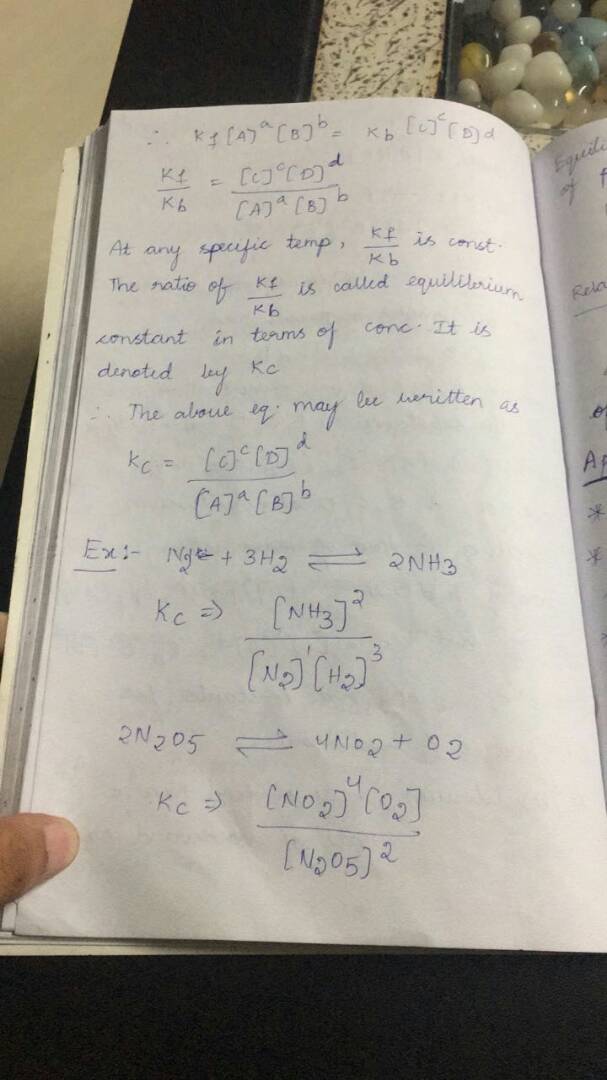 ∴ Kf [A]^a [B]^b = Kb [C]^c [D]^d
Kf/Kb = [C]^c [D]^d / [A]^a [B]^b
At any specific temp, Kf/Kb is const.
The ratio of Kf/Kb is called equilibrium
constant in terms of conc. It is
denoted by Kc
∴ The above eq. may be written as
Kc = [C]^c [D]^d / [A]^a [B]^b
Ex:- N2 + 3H2 ⇌ 2NH3
Kc ⇒ [NH3]^2 / [N2]^1 [H2]^3
2N2O5 ⇌ 4NO2 + O2
Kc ⇒ [NO2]^4 [O2] / [N2O5]^2
of
Rela
Ap
*
*